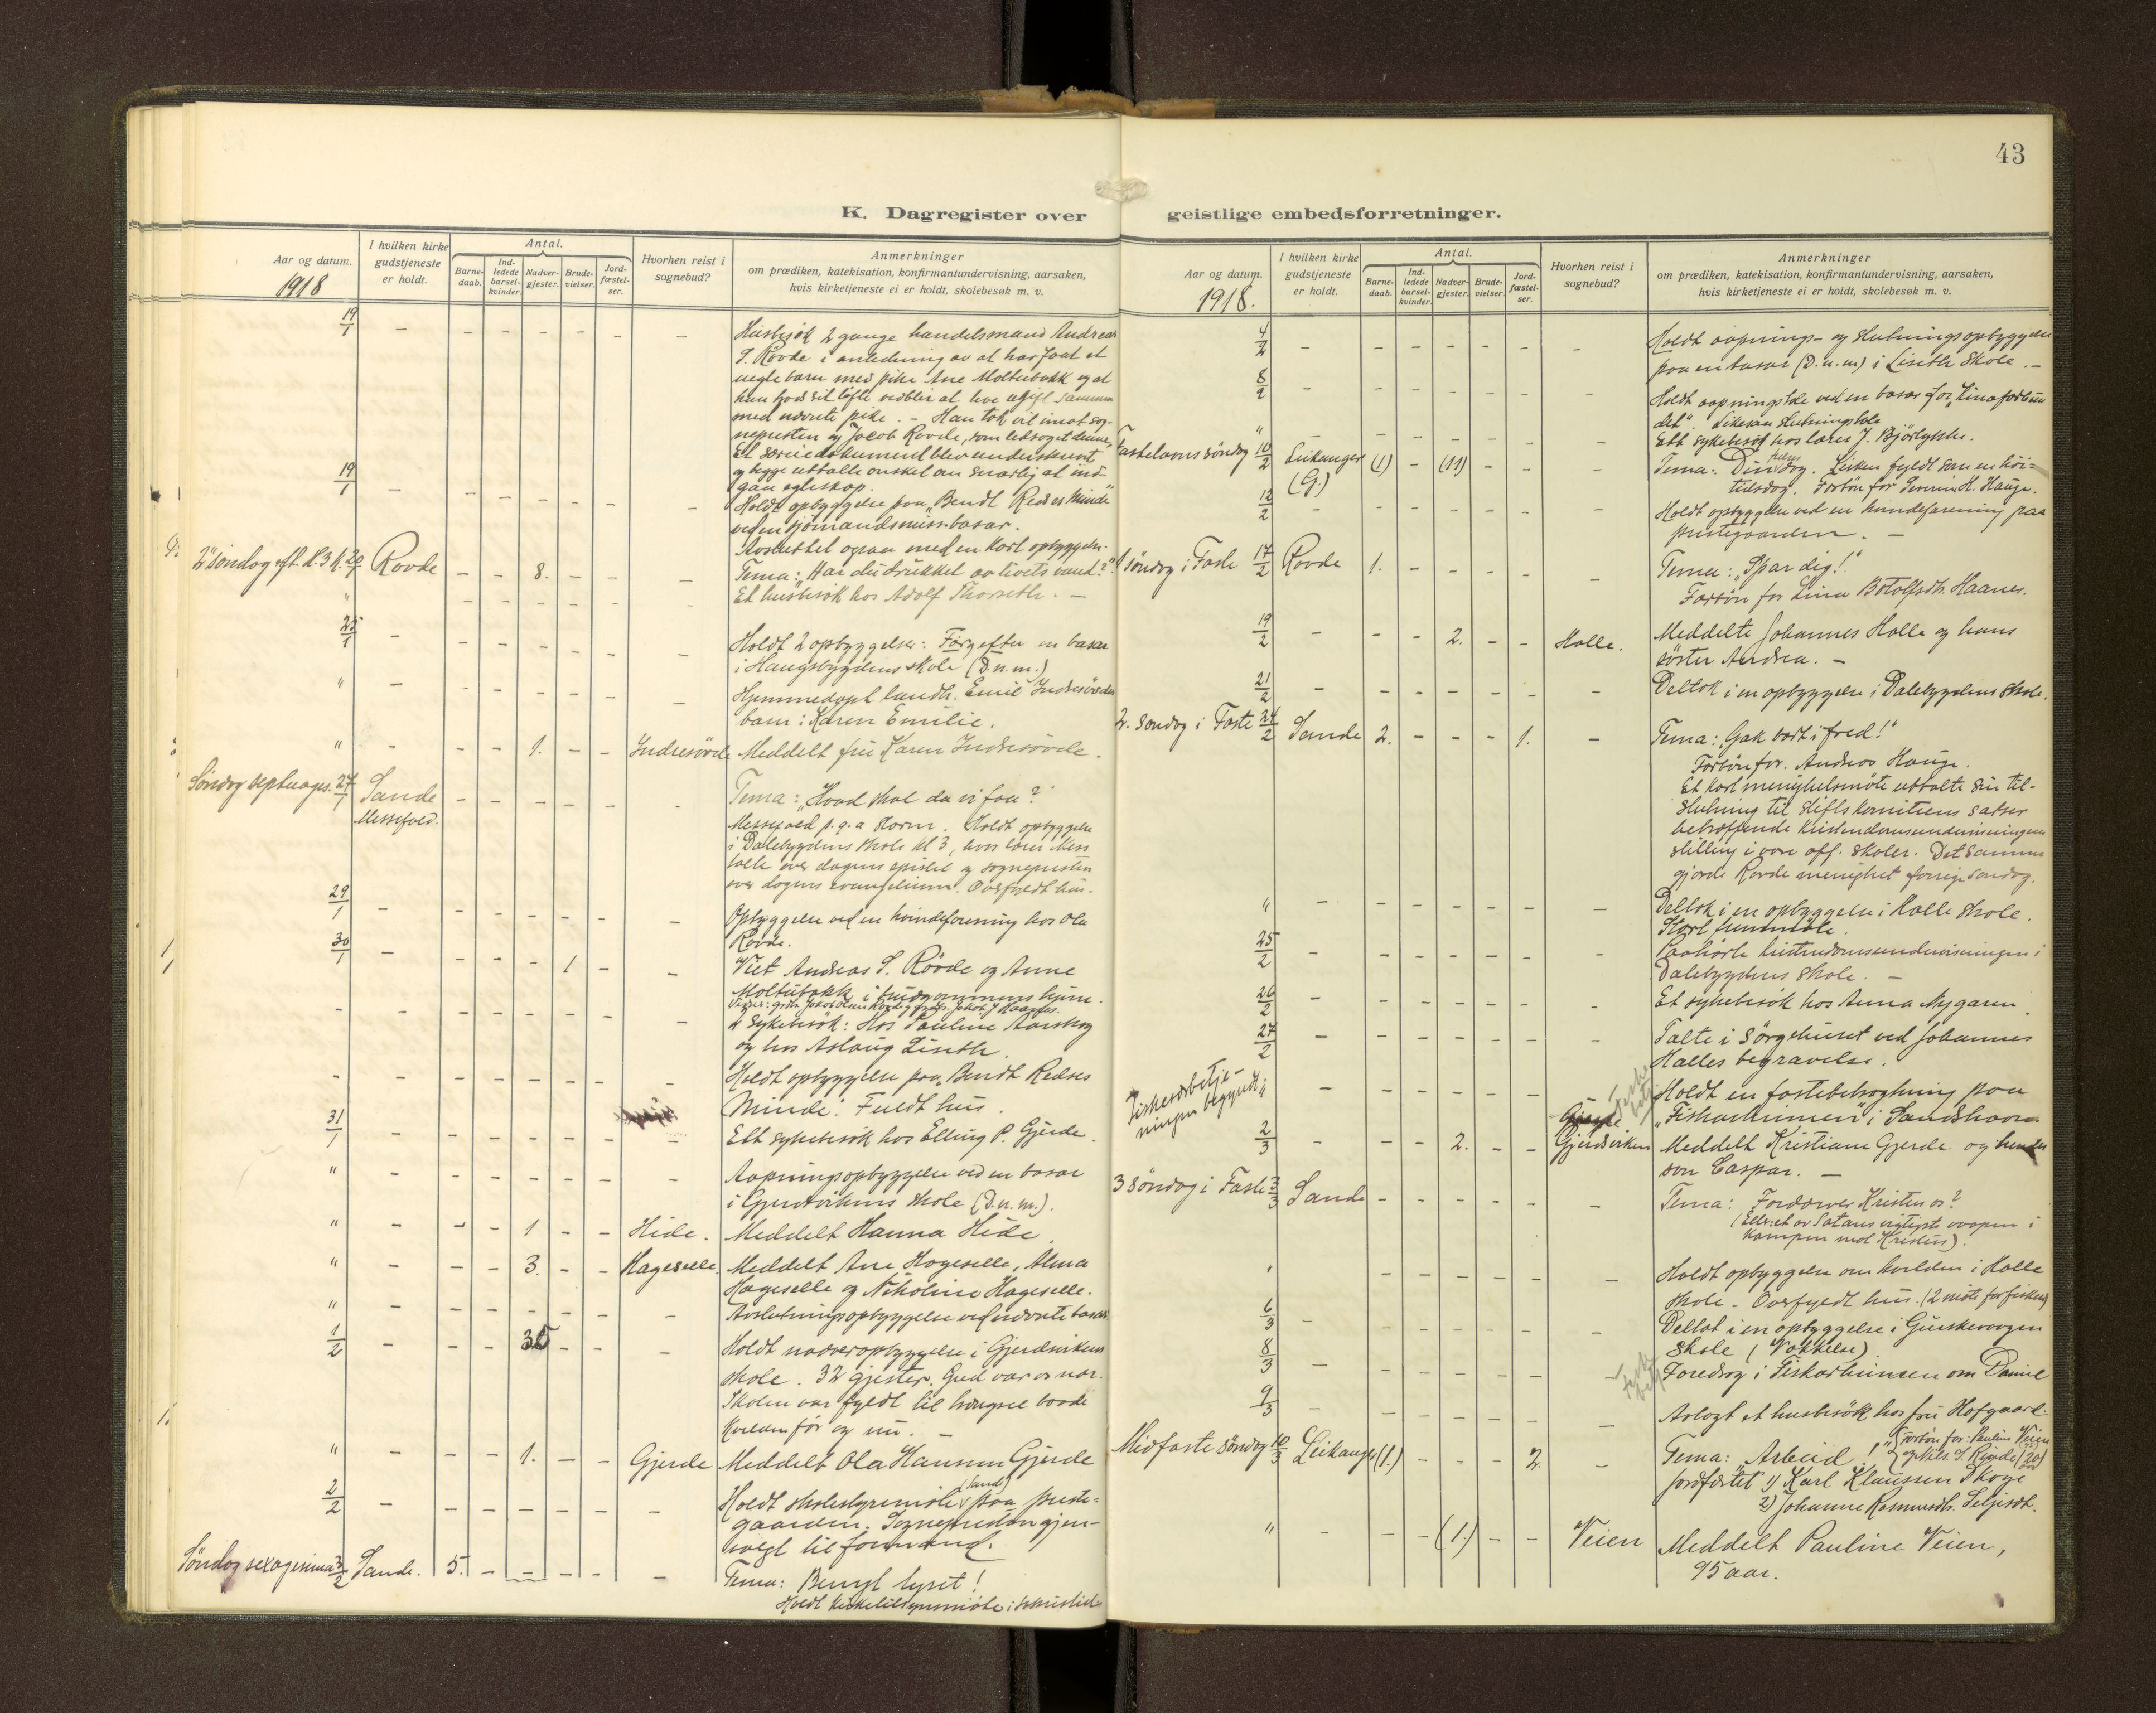 43
K. Dagregister over geistlige embedsforretninger.
Aar og datum.
1918
I hvilken kirke gudstjeneste er holdt.
Antal.
Barne-daab.
Ind-ledede barsel-kvinder.
Nadver-gjester.
Brude-vielser.
Jord-fæstel-ser.
Hvorhen reist i sognebud?
Anmerkninger
om prædiken, katekisation, konfirmantundervisning, aarsaken,
hvis kirketjeneste ei er holdt, skolebesøk m. v.
19/1 - - - - - - -
Husbesøk 2 gange handelsmand Andreas
S. Rovde i anledning av at har faat et
uegte barn med pike Ane Moltubakk og at
han trods sit løfte vedblir at leve ugift sammen
med nævnte pike. - Han tok vel imot sog-
nepresten og Jacob Rovde, som ledsaget denne,
Et dokument blev underskrevet
og begge uttalte ønsket om snarlig at ind-
gaa egteskap.
19/1 - - - - - - -
Holdt opbyggelse paa "Bendt Redses Minde"
ved en sjømandsmiss. basar.
Avsluttet ogsaa med en kort opbyggelse.
2' søndag eft. H. 3 K. 20/1 Rovde - - 8. - - -
Tema: "Har du drukket av livets vand?"
" Et husbesøk hos Adolf Thorseth. -
25/1 - - - - - - -
Holdt 2 opbyggelser: Før og efter en basar
i Haugsbygdens skole (D.n.m.)
" - - - - - - -
Hjemmedøpt landh. Emil Indresøvdes
barn: Karen Emilie.
" - - - 1. - - Indresøvde Meddelt fru Karen Indresøvde.
Søndag septuages. 27/1 Sande - - - - - -
Messefald.
Tema: "Hvad skal da vi faa?"
Messefald p. g. a storm. Holdt opbyggelse
i Dalebygdens skole kl 3, hvor lærer Moss
talte over dagens epistel og sognepresten
over dagens evangelium. Overfyldt hus.
29/1 - - - - - - -
Opbyggelse ved en kvindeforening hos Ola
Rovde.
30/1 - - - - 1 - -
Viet Andreas S. Rövde og Anne
Moltubakk i brudgommens hjem.
- - - - - - -
2 sykebesøk: Hos Pauline Aarskog
og hos Aslaug Liseth.
- - - - - - -
Holdt opbyggelse paa "Bendt Redses
Minde". Fuldt hus.
31/1 - - - - - - -
Ett sykebesøk hos Elling P. Gjerde.
" - - - - - - -
Aapningsopbyggelse ved en basar
i Gjerdsvikens skole (D.n.m.).
" - - - 1 - - Hide. Meddelt Hanna Hide.
" - - - 3. - - Hageselle. Meddelt Ane Hageselle, Alma
Hageselle og Nikoline Hageselle.
" - - - - - - -
Avslutningsopbyggelse ved nævnte basar
1/2 - - - 35 - - -
Holdt nadveropbyggelse i Gjerdsvikens
skole. 32 gjester. Gud var os nær.
Skolen var fyldt til trængsel baade
kvelden før og nu. -
" - - - 1. - - Gjerde Meddelt Ola Hansen Gjerde
2/2 - - - - - - -
Holdt skolestyremøte (Sande) paa preste-
gaarden. Sognepresten gjen-
valgt til formand.
Søndag sexagesima 3/2 Sande. 5. - - - - -
Tema: Benyt lyset!
Holdt kirketilsynsmøte i sakristiet
Aar og datum.
1918.
I hvilken kirke gudstjeneste er holdt.
Antal.
Barne-daab.
Ind-ledede barsel-kvinder.
Nadver-gjester.
Brude-vielser.
Jord-fæstel-ser.
Hvorhen reist i sognebud?
Anmerkninger
om prædiken, katekisation, konfirmantundervisning, aarsaken,
hvis kirketjeneste ei er holdt, skolebesøk m. v.
4/2 - - - - - - -
Holdt aapnings- og slutningsopbyggelse
paa en basar (D.n.m) i Liseth skole. -
8/2 - - - - - - -
Holdt aapningstale ved en basar for "Kinaforbun
det". Likesaa slutningstale
" - - - - - - -
Ett sykebesøk hos lærer J. Bjørlykke.
Fastelavns søndag 10/2 Leikanger (1) - (11) - - -
(G.)
Tema: Din dag. Kirken fyldt som en høi-
tidsdag. Forbøn for Severin H. Hauge.
12/2 - - - - - - -
Holdt opbyggelse ved en kvindeforening paa
prestegaarden. -
1 søndag i Faste 17/2 Rovde 1. - - - - -
Tema: "Spar dig!"
Forbøn for Lina Botolfsdtr. Haanes.
19/2 - - - 2. - - Halle.
Meddelte Johannes Halle og hans
søster Andrea. -
21/2 - - - - - - -
Deltok i en opbyggelse i Dalebygdens skole.
2. søndag i Faste 24/2 Sande 2. - - - 1. -
Tema: "Gak bort i fred!"
Forbøn for Andreas Hauge.
Et kort menighetsmøte uttalte sin til-
slutning til stiftskomiteens saker
betræffende kristendomsundervisningens
stilling i vore off. skoler. Det samme
gjorde Rovde menighet forrige søndag.
" - - - - - - -
Deltok i en opbyggelse i Halle skole.
Stort fremmöte.
25/2 - - - - - - -
Paahørte kristendomsundervisningen i
Dalebygdens skole. -
26/2 - - - - - - -
Et sykebesøk hos Anna Nygaren.
27/2 - - - - - - -
Talte i sørgehuset ved Johannes
Halles begravelse.
Fiskerarbeide-
ningen begyndt,,
- - - - - -
Holdt en fastebetragtning paa
"Fiskarheimen" i Sandshavn.
2/3 - - - 2. - - Gjerdsviken
Meddelt Kristiane Gjerde og hendes
søn Caspar. -
3 søndag i Faste 3/3 Sande - - - - - -
Tema: Fordærver Kristen os?
(Eller: et av Satans vigtigste vaapen i
kampen mot Kristus).
" - - - - - -
Holdt opbyggelse om kvelden i Halle
skole. Overfyldt hus. (2 møte for fiskere)
6/3 - - - - - - -
Deltok i en opbyggelse i Gurskevaagen
skole (Vækkelse)
8/3 - - - - - - -
Foredrag i Fiskarheimen om Daniel
9/3 - - - - - - -
Avlagt et husbesøk hos fru Hofgaard.
Midfaste søndag 10/3 Leikanger (1.) - - - 2. -
Tema: "Arbeid!" Forbøn for: Pauline Veien
og Nils S. Rjinde (20)
Jordfæstet 1) Karl Klaussen Skoge
2) Johanne Rasmusdtr. Seljeset.
" - - - (1.) - - Veien
Meddelt Pauline Veien,
95 aar.